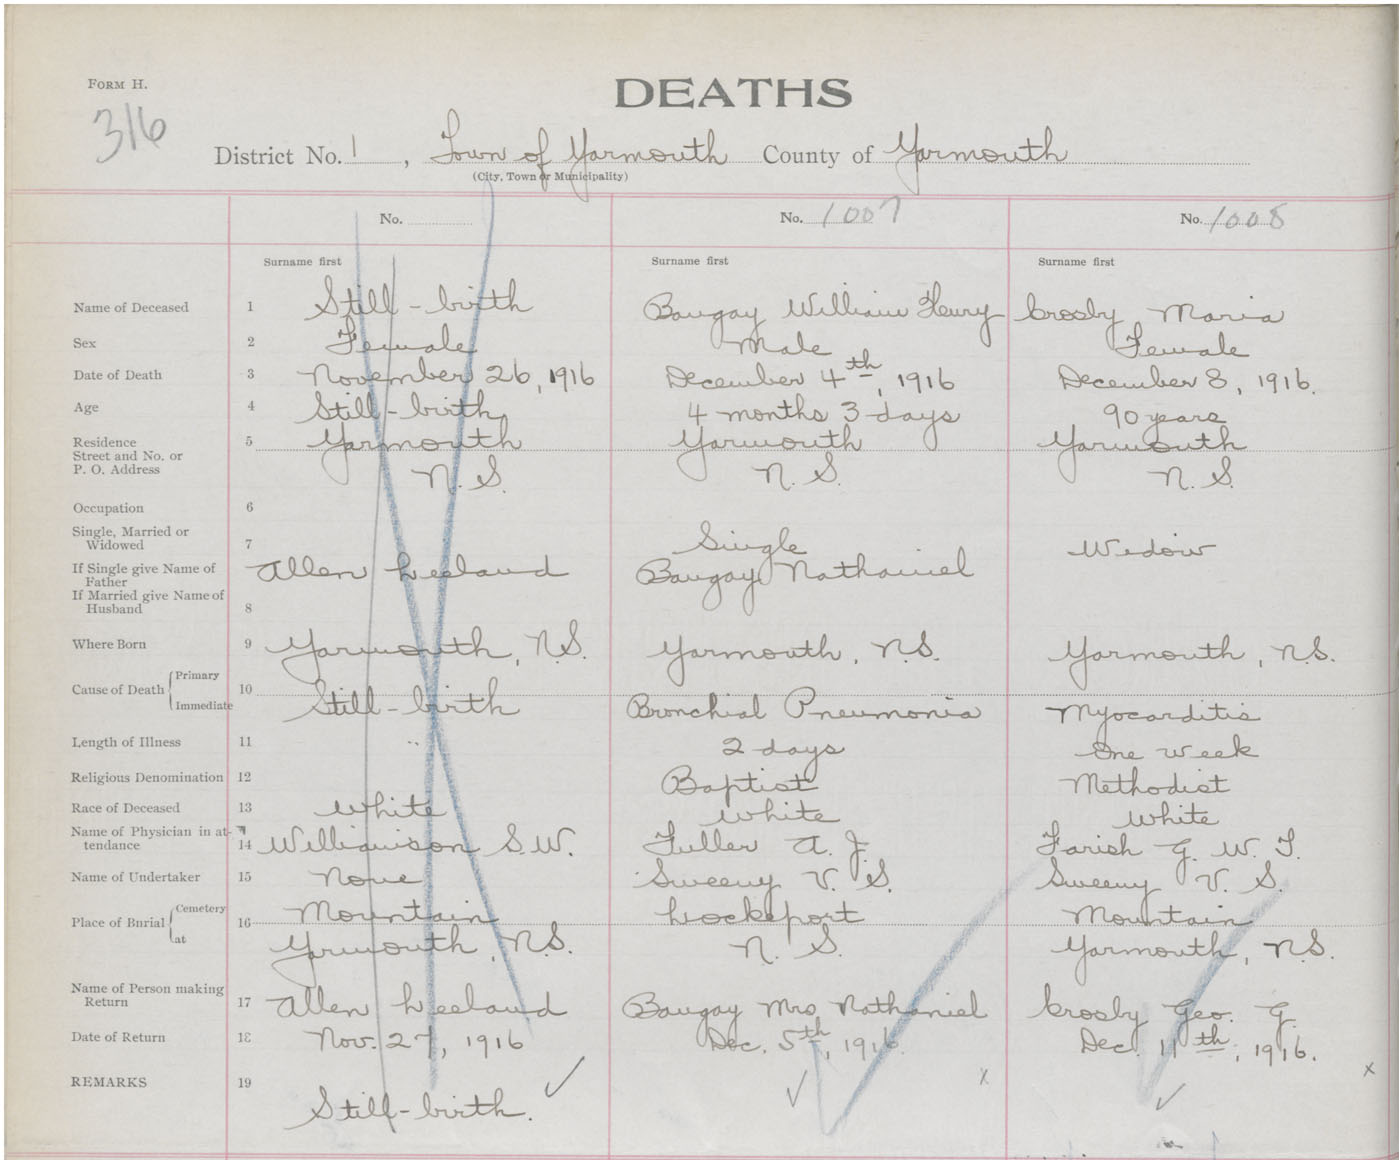 FORM H.
316
DEATHS
District No. 1, Town of Yarmouth County of Yarmouth
(City, Town or Municipality)
No. No. 1007 No. 1008
Surname first Surname first Surname first
Name of Deceased 1 Still-birth Baugay William Henry Crosby Maria
Sex 2 Female Male Female
Date of Death 3 November 26, 1916 December 4th, 1916 December 8, 1916.
Age 4 Still-birth 4 months 3 days 90 years
Residence 5 Yarmouth Yarmouth Yarmouth
Street and No. or
P. O. Address N. S. N. S. N. S.
Occupation 6
Single, Married or
Widowed 7 Single Widow
If Single give Name of
Father Allen Leeland Baugay Nathaniel
If Married give Name of
Husband 8
Where Born 9 Yarmouth, N.S. Yarmouth, N.S. Yarmouth, N.S.
Primary
Cause of Death 10
Immediate Still-birth Bronchial Pneumonia Myocarditis
Length of Illness 11 " 2 days One week
Religious Denomination 12 Baptist Methodist
Race of Deceased 13 White White White
Name of Physician in at-
tendance 14 Williamson S. W. Fuller A. J. Farish G. W. T.
Name of Undertaker 15 None Sweeny V. S. Sweeny V. S.
Cemetery Mountain Lockeport Mountain
Place of Burial 16
at Yarmouth, N.S. N. S. Yarmouth, N.S.
Name of Person making
Return 17 Allen Leeland Baugay Mrs Nathaniel Crosby Geo. G.
Date of Return 18 Nov. 27, 1916 Dec. 5th, 1916. Dec. 11th, 1916.
REMARKS 19
Still-birth.